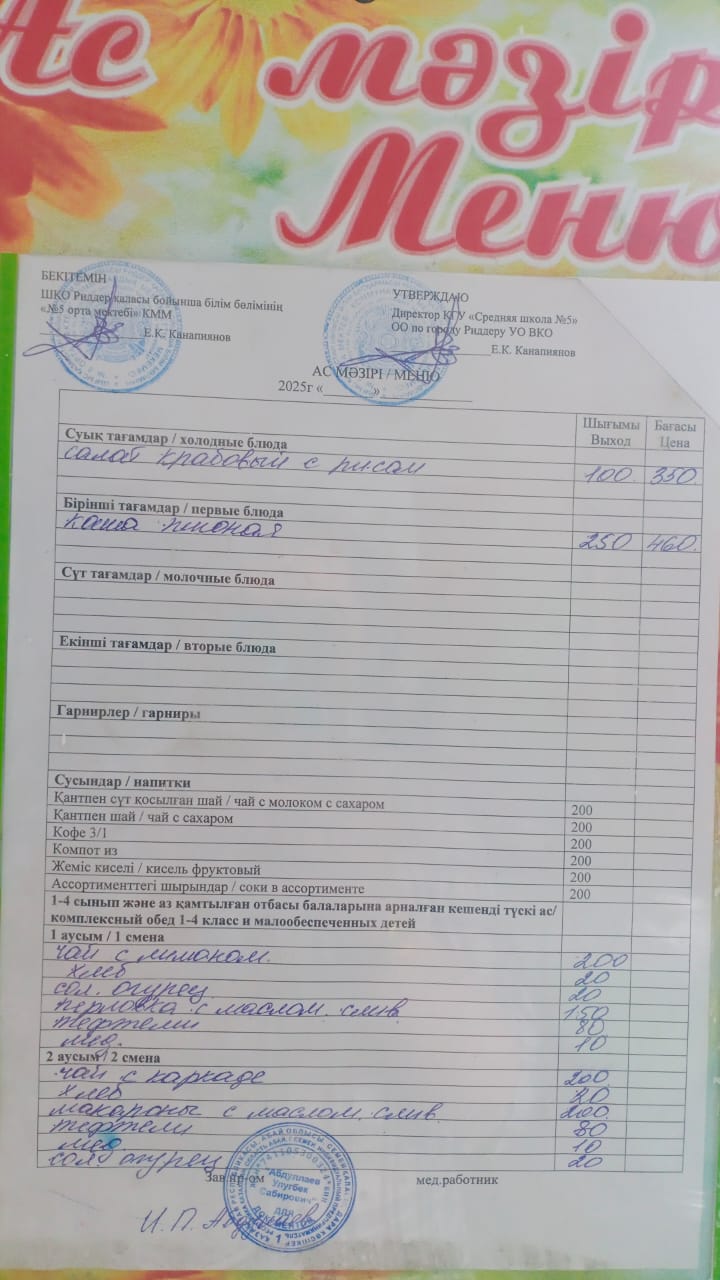 Ас мәзір
Меню
БЕКІТЕМІН
ШҚО Риддер қаласы бойынша білім бөлімінің
«№5 орта мектебі» КММ
Е.К. Канапиянов
УТВЕРЖДАЮ
Директор КГУ «Средняя школа №5»
ОО по городу Риддеру УО ВКО
Е.К. Канапиянов
АС МӘЗІРІ / МЕНЮ
2025г «______»______________
Шығымы Выход Бағасы Цена
Суық тағамдар / холодные блюда
салат крабовый с рисом 100 350
Бірінші тағамдар / первые блюда
каша 250 460
Сүт тағамдар / молочные блюда
Екінші тағамдар / вторые блюда
Гарнирлер / гарниры
Сусындар / напитки
Қантпен сүт қосылған шай / чай с молоком с сахаром 200
Қантпен шай / чай с сахаром 200
Кофе 3/1 200
Компот из 200
Жеміс киселі / кисель фруктовый 200
Ассорименттегі шырындар / соки в ассортименте 200
1-4 сынып және аз қамтылған отбасы балаларына арналған кешенді түскі ас/
комплексный обед 1-4 класс и малообеспеченных детей
1 аусым / 1 смена
чай с лимоном. 200
хлеб 20
сол. огурец 20
перловка с маслом слив 150
тефтели 80
мёд. 10
2 аусым / 2 смена
чай с каркаде 200
хлеб 20
макароны с маслом слив 200
тефтели 80
мёд 10
сол. огурец 20
Зав.пр-ом мед.работник
"Абдуллаев
Улугбек
Сабирович"
ДЛЯ
ДОКУМЕНТОВ
1
И.П. Абдуллаев